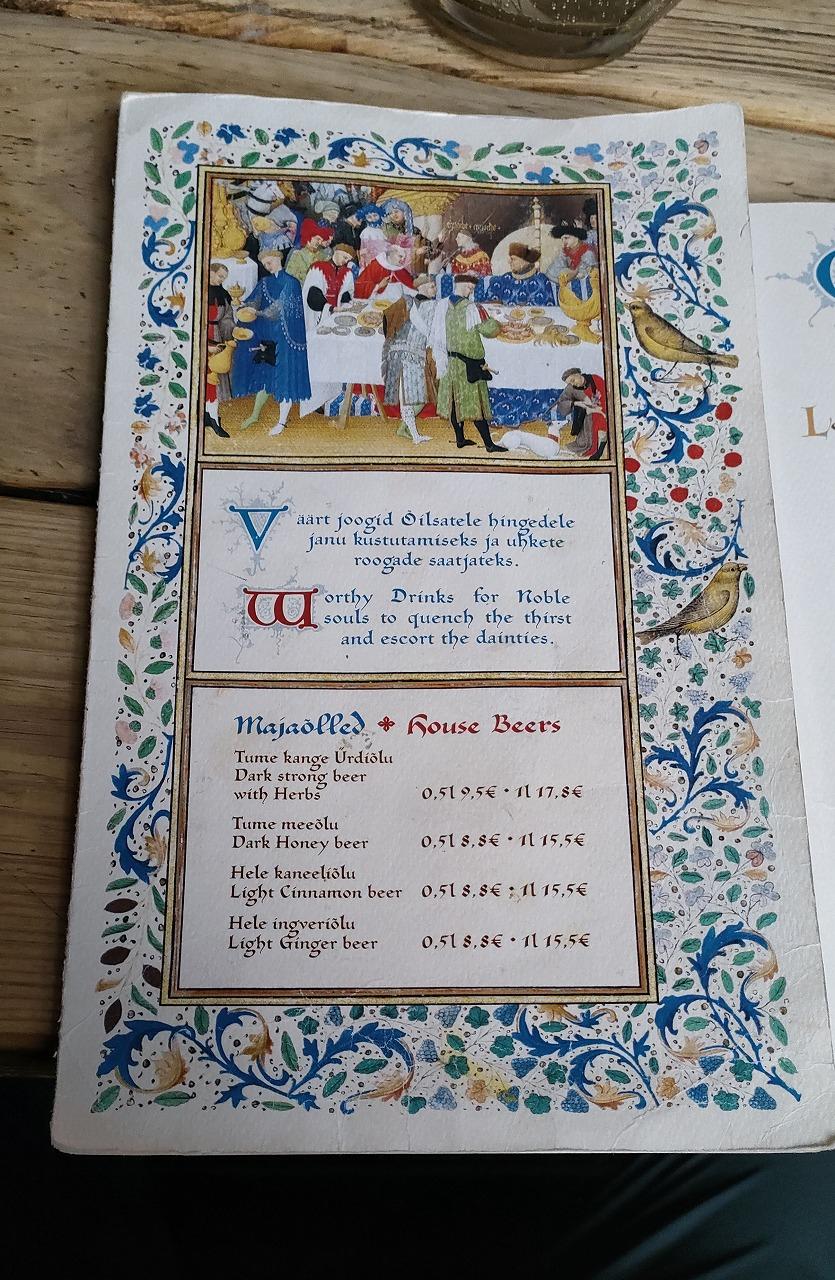 Väärt joogid Õilsatele hingedele
janu kustutamiseks ja uhkete
roogade saatjateks.
Worthy Drinks for Noble
souls to quench the thirst
and escort the dainties.
Majaõlled House Beers
Tume kange Ürdiõlu
Dark strong beer
with Herbs 0,5l 9,5€ • 1l 17,8€
Tume meeõlu
Dark Honey beer 0,5l 8,8€ • 1l 15,5€
Hele kaneeliõlu
Light Cinnamon beer 0,5l 8,8€ • 1l 15,5€
Hele ingveriõlu
Light Ginger beer 0,5l 8,8€ • 1l 15,5€